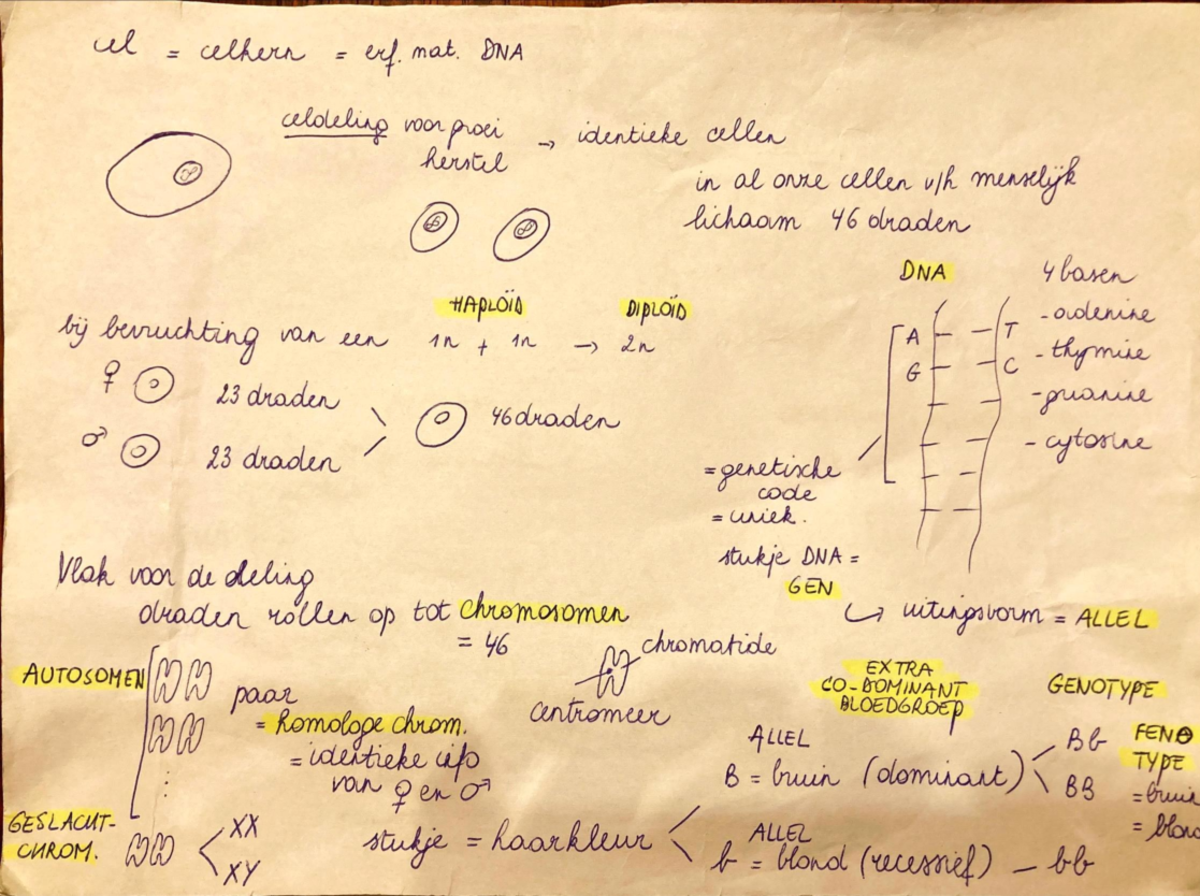 cel = celkern = erf. mat. DNA
celdeling voor groei → identieke cellen
herstel
in al onze cellen v/h menselijk
lichaam 46 draden
DNA
4 basen
- adenine
- thymine
- guanine
- cytosine
A T
G C
= genetische
code
= uniek.
HAPLOÏD DIPLOÏD
bij bevruchting van een 1n + 1n → 2n
♀ 23 draden
46 draden
♂ 23 draden
stukje DNA =
GEN
↪ uitingsvorm = ALLEL
Vlak voor de deling
draden rollen op tot chromosomen
= 46
chromatide
centromeer
AUTOSOMEN
paar
= homologe chrom.
= identieke info
van ♀ en ♂
GESLACHT-
CHROM.
XX
XY
EXTRA
CO-DOMINANT
BLOEDGROEP
GENOTYPE
FENO
TYPE
= bruin
= blond
ALLEL
B = bruin (dominant)
Bb
BB
stukje = haarkleur
ALLEL
b = blond (recessief) - bb